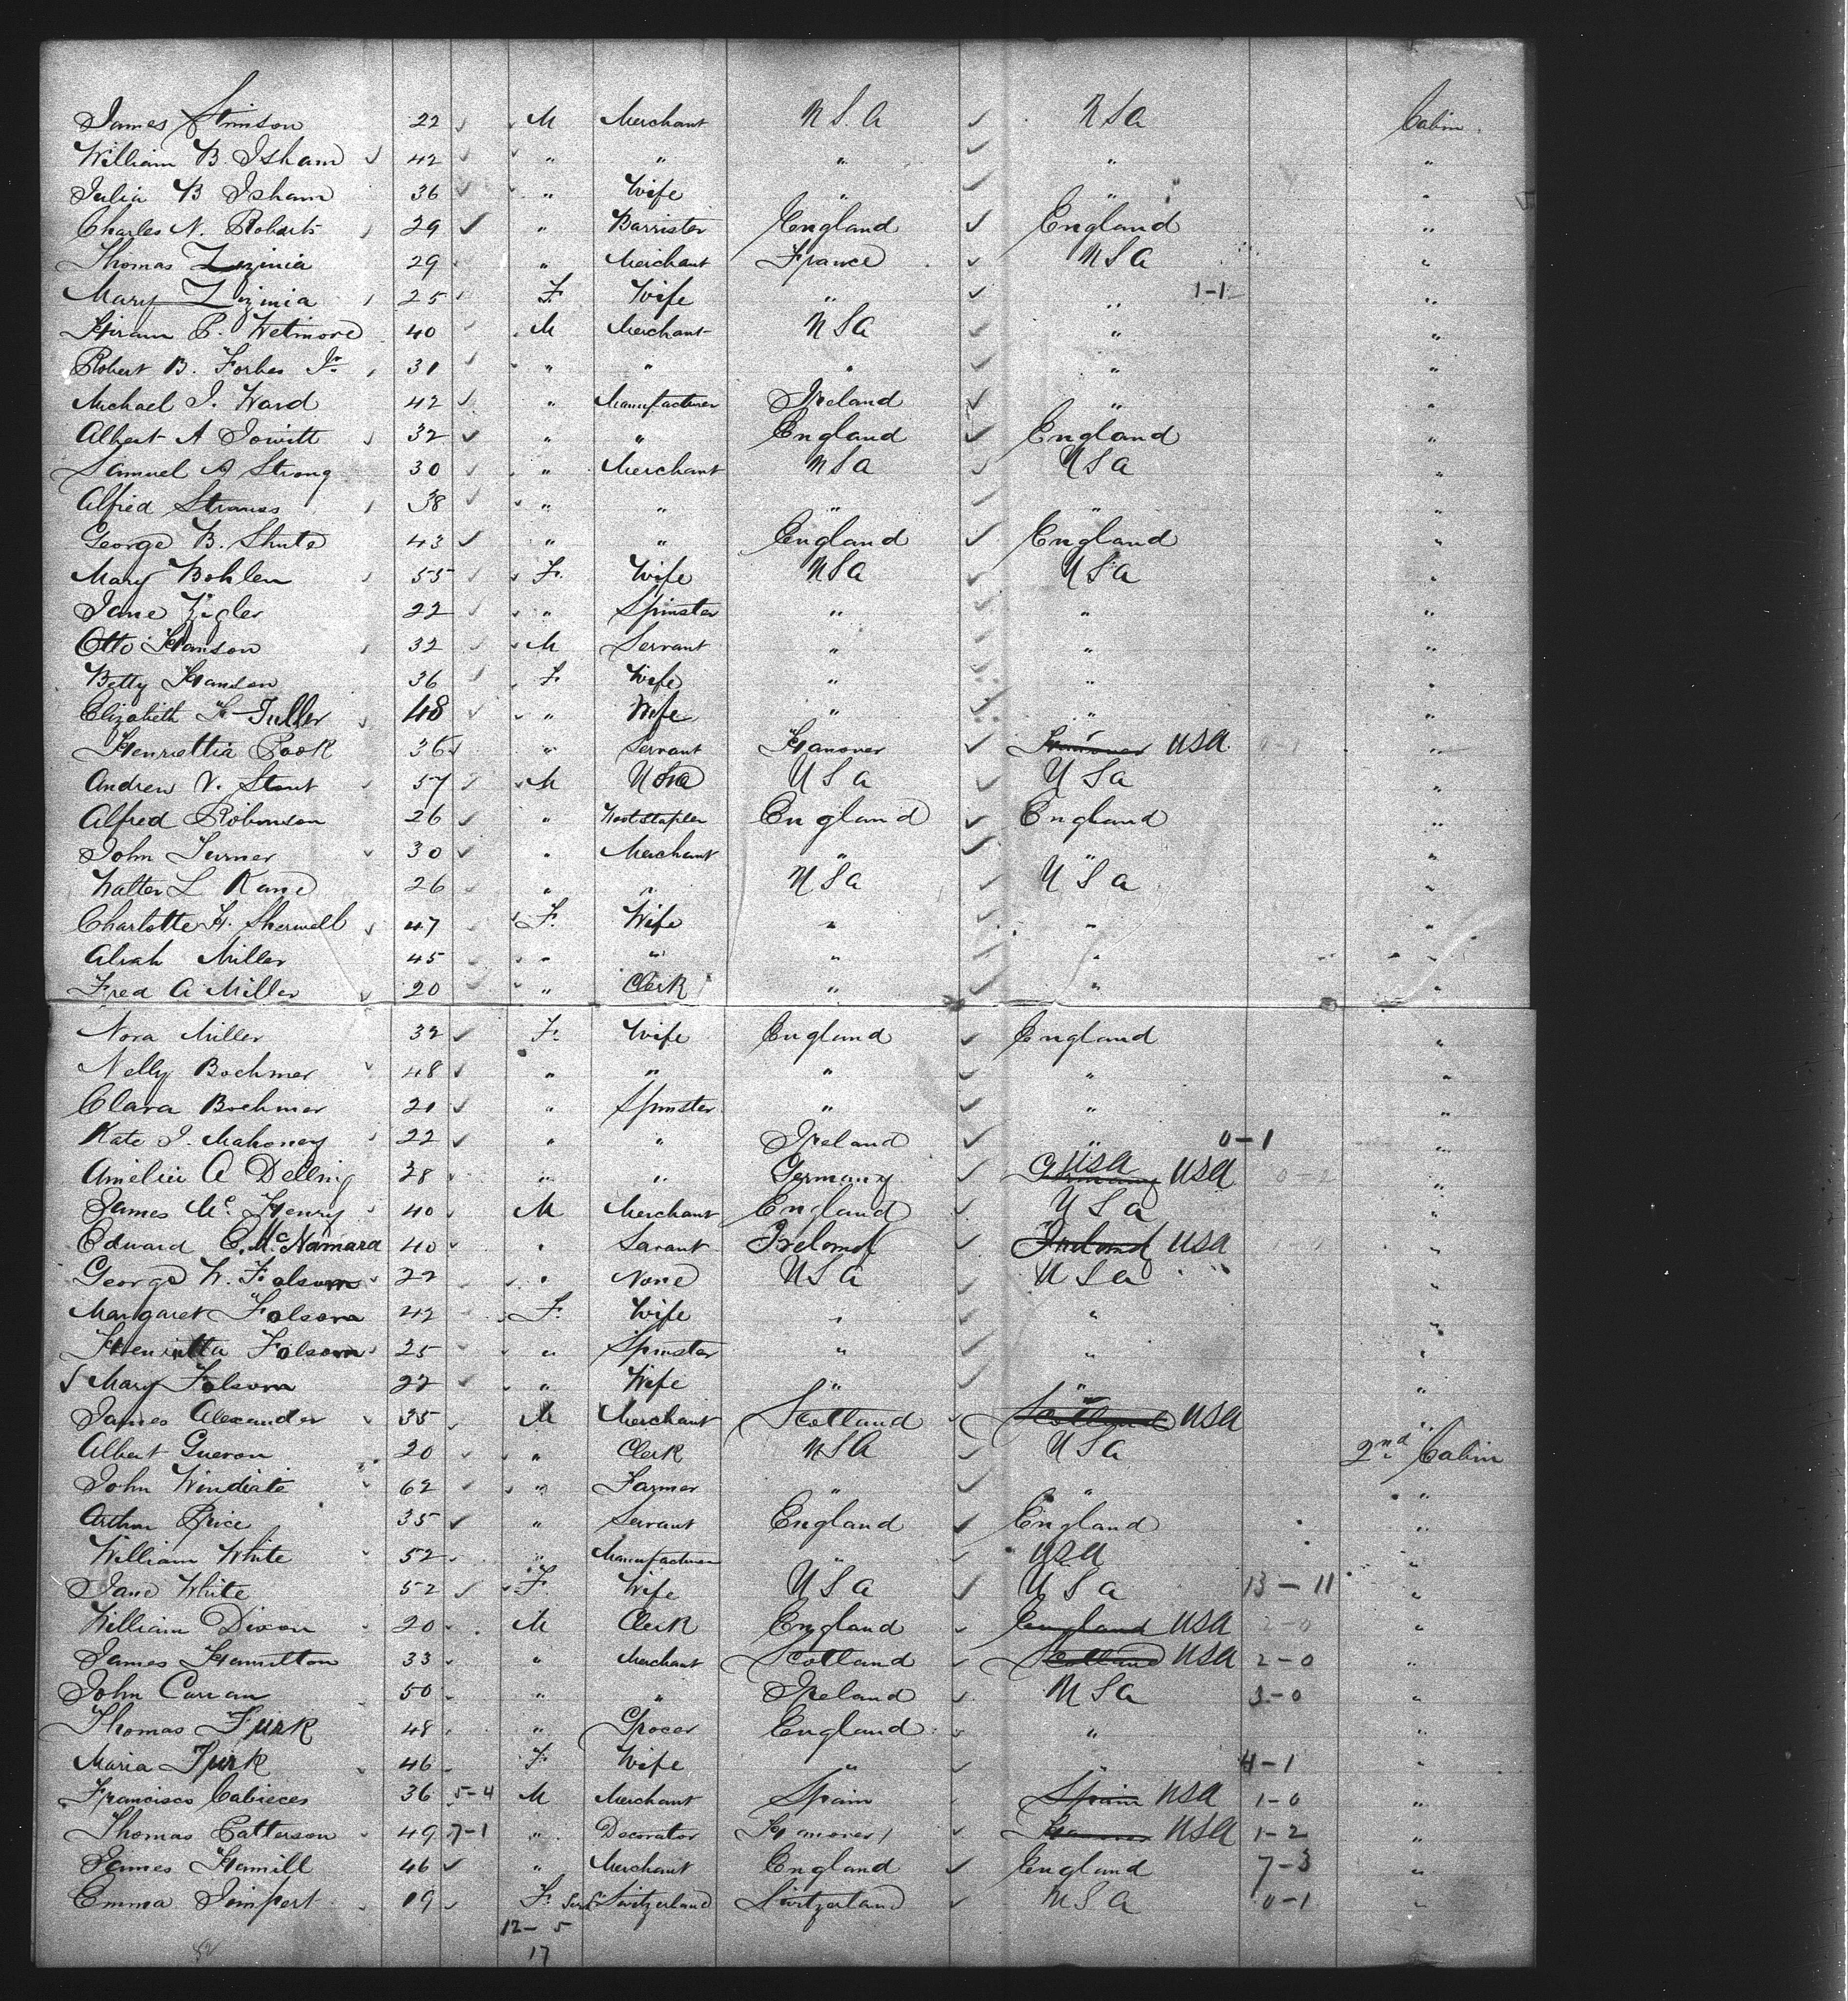 James Stimson 22 M Merchant U S A U S A Cabin
William B. Isham 42 " " " " "
Julia B Isham 36 " Wife " " "
Charles N. Roberts 29 " Barrister England England "
Thomas Zizinia 29 " Merchant France U S A "
Mary Zizinia 25 F Wife " " 1-1 "
Hiram P. Wetmore 40 M Merchant U S A " "
Robert B. Forbes Jr 31 " " " " "
Michael J. Ward 42 " Manufacturer Ireland " "
Albert A Jowitt 32 " " England England "
Samuel A Strong 30 " Merchant U S A U S A "
Alfred Strauss 38 " " " " "
George B. Shute 43 " " England England "
Mary Bohlen 55 F. Wife U S A U S A "
Jane Zigler 22 " Spinster " " "
Otto Hanson 32 M Servant " " "
Betty Hanson 36 F Wife " " "
Elizabeth Fuller 48 " Wife " " "
Henriettia Pook 36 " Servant Hanover Hanover USA "
Andrew V. Stout 57 M U S A U S A "
Alfred Robinson 26 " Woolstapler England England "
John Turner 30 " Merchant " " "
Walter L Kane 26 " " U S A U S A "
Charlotte H. Sherwell 47 F. Wife " " "
Miller 45 " " " " "
Fred A Miller 20 " Clerk " " "
Nora Miller 32 F. Wife England England "
Nelly Boehmer 48 " " " " "
Clara Boehmer 20 " Spinster " " "
Kate J. Mahoney 22 " " Ireland " 0-1 "
Amelia A Delling 28 " " Germany Germany USA USA 0-2 "
James Mc Henry 40 M Merchant England U S A "
Edward C. McNamara 40 " Servant Ireland Ireland USA "
George W. Folsom 22 " None U S A U S A "
Margaret Folsom 42 F. Wife " " "
Henrietta Folsom 25 " Spinster " " "
Mary Folsom 22 " Wife " " "
James Alexander 35 M Merchant Scotland Scotland USA "
Albert Gueron 20 " Clerk U S A U S A 2nd Cabin
John Windiate 62 " Farmer " " "
Arthur Price 35 " Servant England England "
William White 52 " Manufacturer " USA "
Jane White 52 F. Wife U S A U S A 13-11 "
William Dixon 20 M Clerk England England USA 2-0 "
James Hamilton 33 " Merchant Scotland Scotland USA 2-0 "
John Curran 50 " " Ireland U S A 3-0 "
Thomas Turk 48 " Grocer England " "
Maria Turk 46 F Wife " " 4-1 "
Francisco Cabieces 36 5-4 M Merchant Spain Spain USA 1-0 "
Thomas Patterson 49 7-1 " Decorator Hanover Hanover USA 1-2 "
James Hamill 46 " Merchant England England 7-3 "
Emma Simpert 19 F. Servt Switzerland Switzerland U S A 0-1 "
12-5
17
52